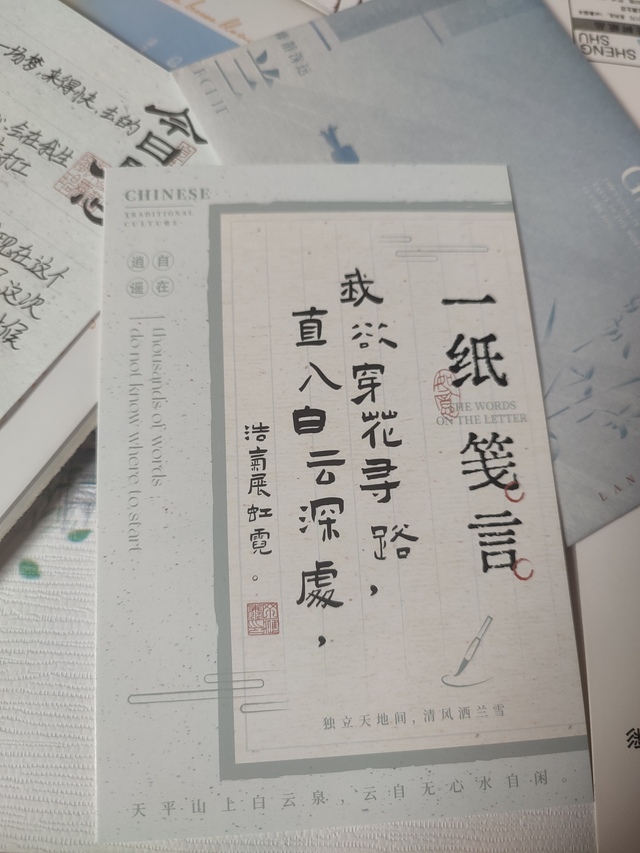 CHINESE
TRADITIONAL
CULTURE
自在
逍遥
thousands of words
do not know where to start
一纸笺言
THE WORDS
ON THE LETTER
我欲穿花寻路，
直入白云深處，
浩氣展虹霓。
独立天地间，清风洒兰雪
天平山上白云泉，云自无心水自闲。
一场梦,来得快,去的
今日
现在这个
这次
候
SHENG
SHU
LAN